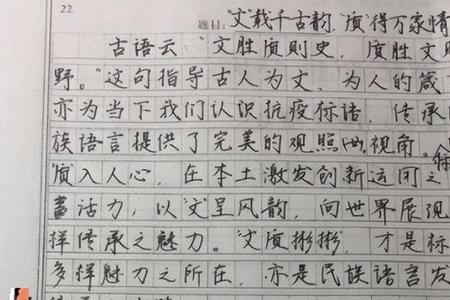 22.
题目:“文”载千古韵,“质”得万家情
古语云“文胜质则史,质胜文则
野。”这句指导古人为文、为人的箴
亦为当下我们认识抗疫标语、传承
族语言提供了完美的观照 视角。
“质”入人心,在本土激发创新运用之
活力,以“文”呈风韵,向世界展现
样传承之魅力。“文质彬彬”,才是标
多样魅力之所在,亦是民族语言发